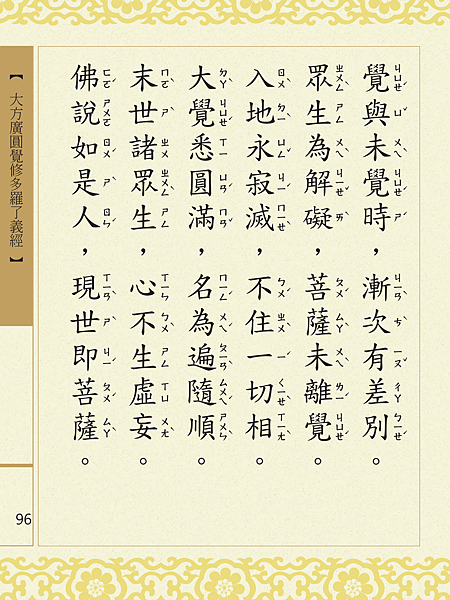 覺與未覺時，漸次有差別。
眾生為解礙，菩薩未離覺。
入地永寂滅，不住一切相。
大覺悉圓滿，名為遍隨順。
末世諸眾生，心不生虛妄。
佛說如是人，現世即菩薩。
【大方廣圓覺修多羅了義經】
96